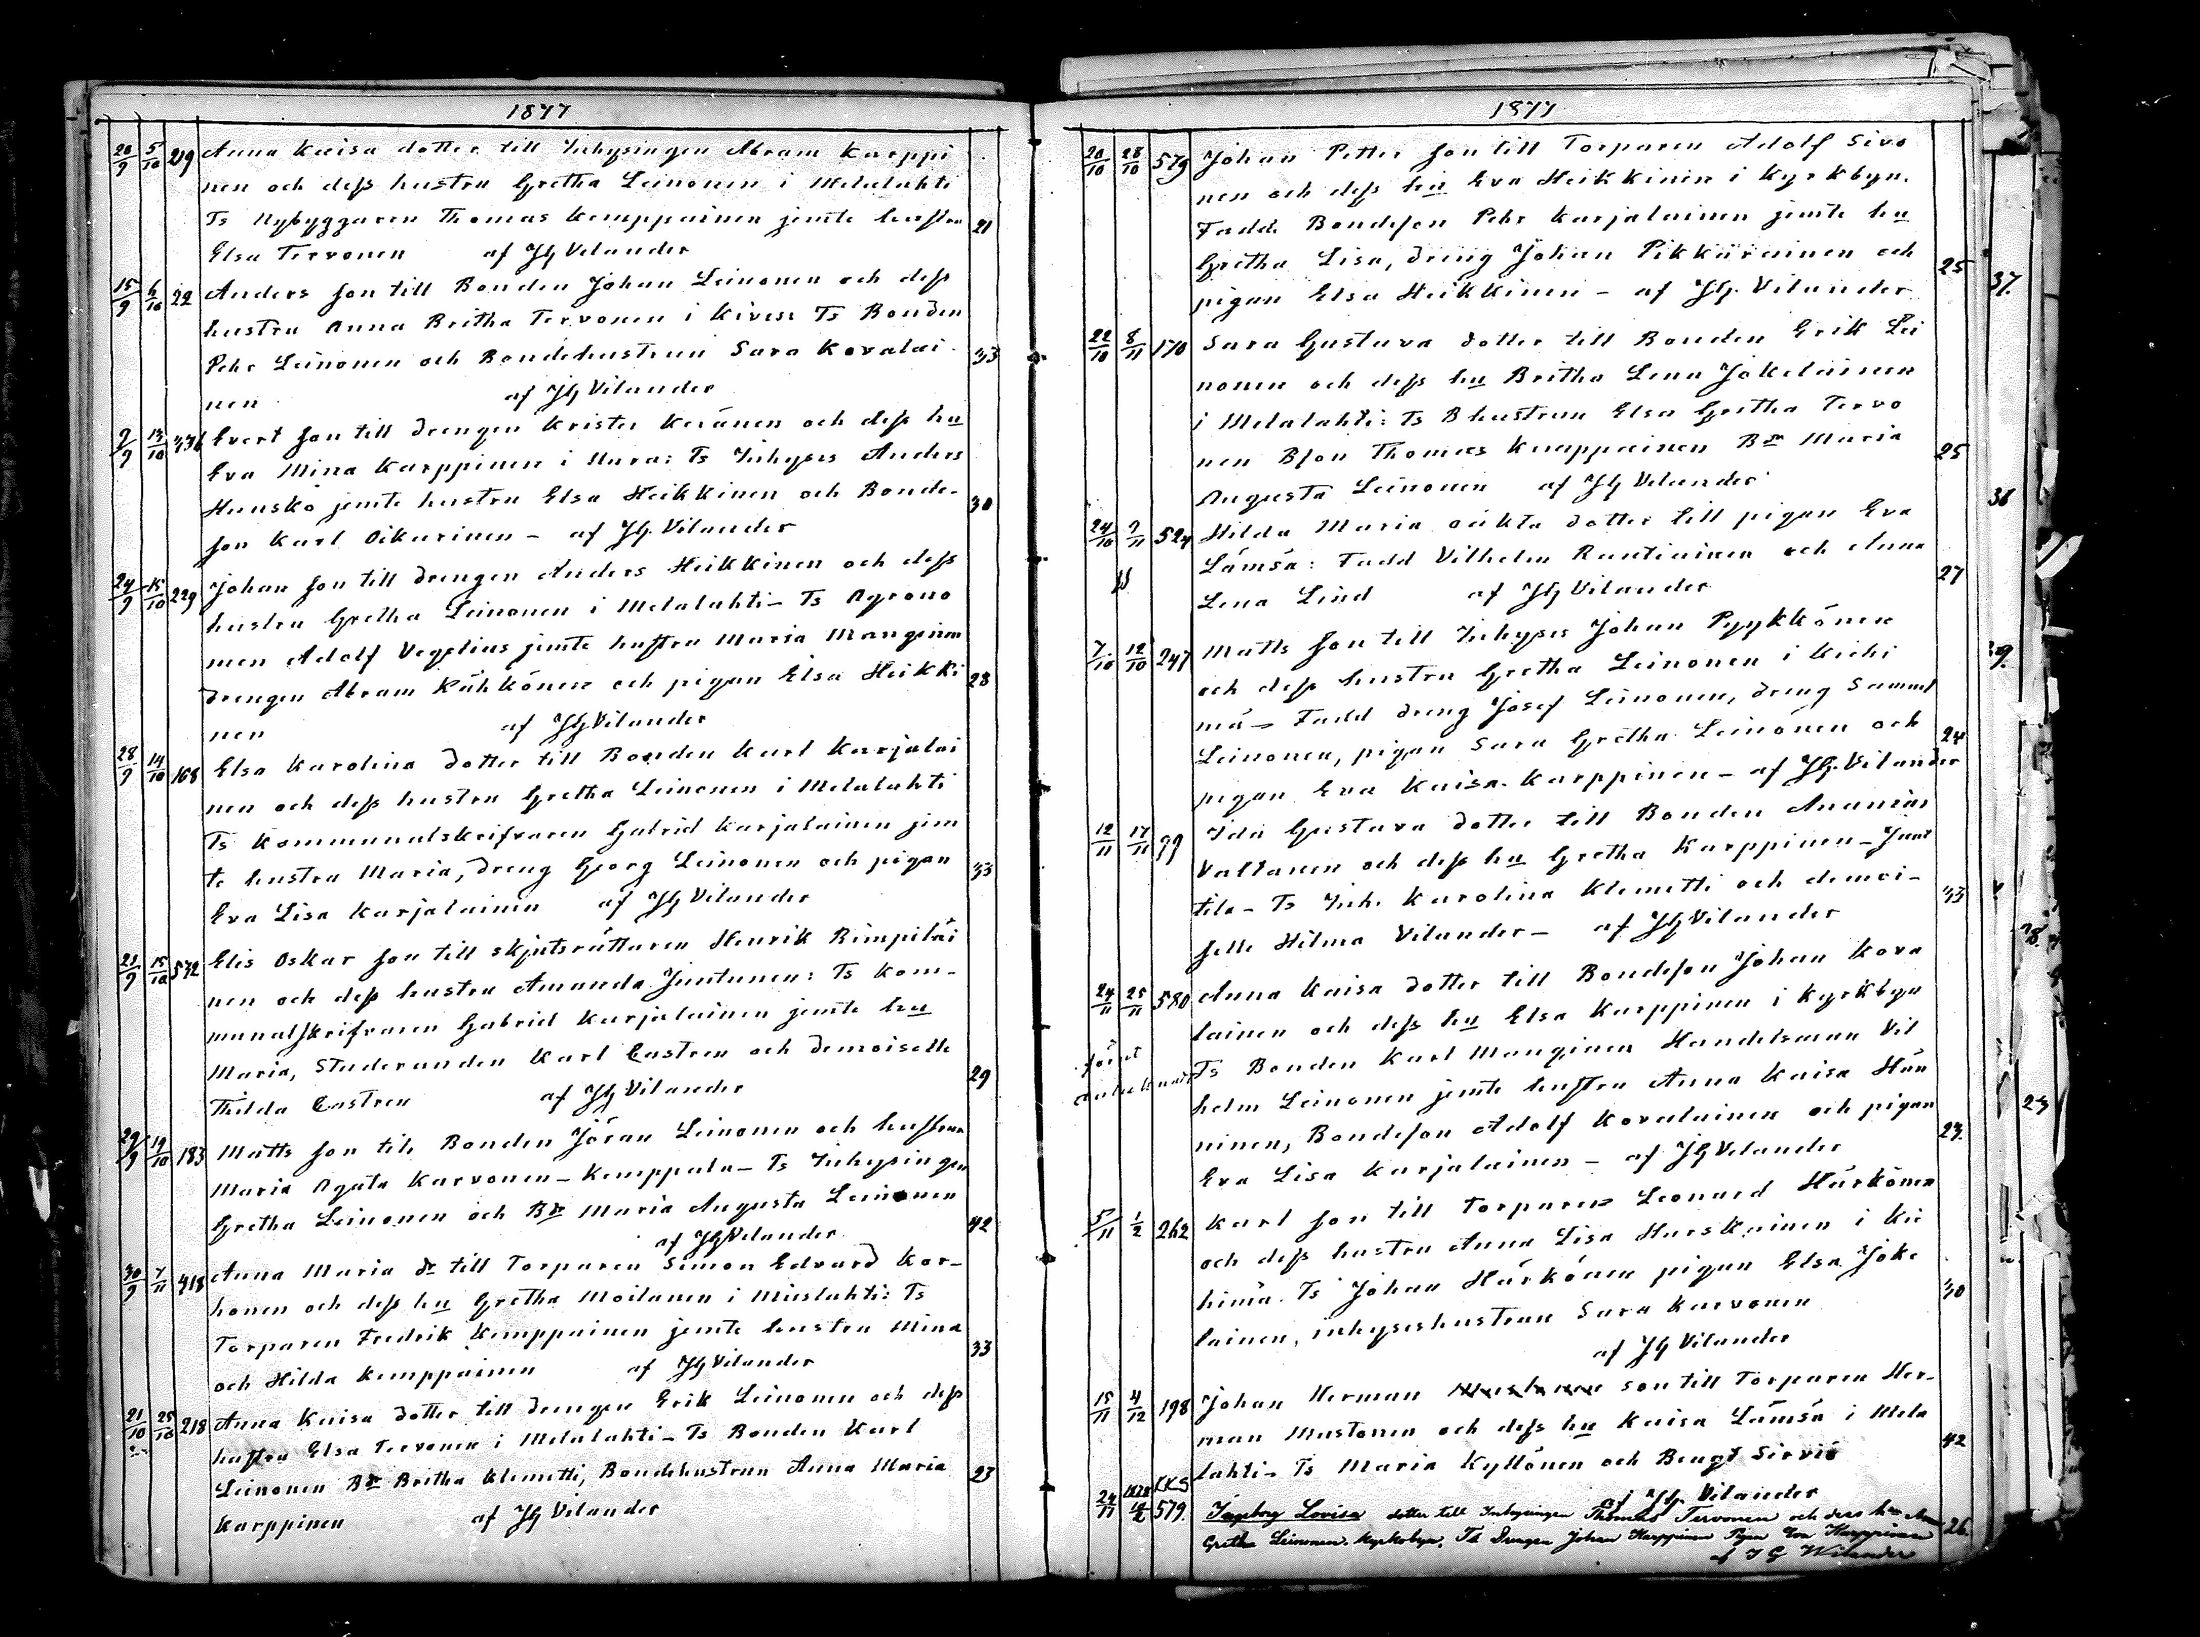 1877
20/9 5/10 219 Anna Kaisa dotter till Inhysingen Abram Karppi
nen och dess hustru Gretha Leinonen i Melalahti
Ts Nybyggaren Thomas Kemppainen jemte hustru 21
Elsa Tervonen af JG Vilander
15/9 6/10 22 Anders son till Bonden Johan Leinonen och dess
hustru Anna Britha Tervonen i Kives: Ts Bonden
Pehr Leinonen och Bondehustrun Sara Kovalai 33
nen af JG Vilander
9/9 13/10 436 Evert son till drengen Krister Keränen och dess hu
Eva Mina Karppinen i Uura: Ts Inhyses Anders
Hunsko jemte hustru Elsa Heikkinen och Bonde- 30
son Karl Oikarinen – af JG. Vilander
24/9 15/10 229 Johan son till drengen Anders Heikkinen och dess
hustru Gretha Leinonen i Melalahti – Ts Agrono
men Adolf Vegelius jemte hustru Maria Manginen
drengen Abram Kähkönen och pigan Elsa Heikki 28
nen af JG Vilander
28/9 14/10 168 Elsa Karolina dotter till Bonden Karl Karjalai
nen och dess hustru Gretha Leinonen i Melalahti
Ts Kommunalskrifvaren Gabriel Karjalainen jem
te hustru Maria, dreng Georg Leinonen och pigan 33
Eva Lisa Karjalainen af JG Vilander
21/9 15/10 572 Elis Oskar son till skjutsrättaren Henrik Rimpiläi
nen och dess hustru Amanda Juntunen: Ts Kom-
munalskrifvaren Gabriel Karjalainen jemte hu
Maria, Studeranden Karl Castren och demoiselle 29
Thilda Castren af JG Vilander
29/9 19/10 183 Matts son till Bonden Jöran Leinonen och hustrun
Maria Agata Karvonen – Kemppala – Ts Inhysingen
Gretha Leinonen och Bdr Maria Augusta Leinonen 42
af JG Vilander
30/9 7/11 418 Anna Maria dr till Torparen Simon Edvard Kor-
honen och dess hu Gretha Moilanen i Mieslahti: Ts
Torparen Fredrik Kemppainen jemte hustru Mina 33
och Hilda Kemppainen af JG Vilander
21/10 25/10 218 Anna Kaisa dotter till drengen Erik Leinonen och dess
hustru Elsa Tervonen i Melalahti – Ts Bonden Karl
Leinonen Bdr Britha Klemetti, Bondehustrun Anna Maria 23
Karppinen af JG Vilander
1877
20/10 28/10 579 Johan Petter son till Torparen Adolf Sivo
nen och dess hu Eva Heikkinen i Kyrkbyn.
Fadd: Bondeson Pehr Karjalainen jemte hu
Gretha Lisa, dreng Johan Pikkärainen och 25
pigan Elsa Heikkinen – af JG. Vilander 37.
22/10 8/11 170 Sara Gustava dotter till Bonden Erik Lei
nonen och dess hu Britha Lena Jokelainen
i Melalahti: Ts Bhustrun Elsa Gretha Tervo
nen Bson Thomas Kemppainen Bdr Maria 25
Augusta Leinonen af JG Vilander
24/10 9/11 524 Hilda Maria oäkta dotter till pigan Eva
Lämsä: Fadd Vilhelm Rautiainen och Anna 27
Lena Lind af JG Vilander
7/10 12/10 247 Matts son till Inhyses Johan Pyykkönen
och dess hustru Gretha Leinonen i Kiehi
mä – Fadd dreng Josef Leinonen, dreng Samuel
Leinonen, pigan Sara Gretha Leinonen och 24
pigan Eva Kaisa Karppinen – af JG. Vilander
12/11 17/11 99 Ida Gustava dotter till Bonden Ananias
Valtanen och dess hu Gretha Karppinen – Junt
tila – Ts Inh. Karolina Klemetti och demoi- 33
selle Hilma Vilander – af JG Vilander
24/11 25/11 580 Anna Kaisa dotter till Bondeson Johan Kova
lainen och dess hu Elsa Karppinen i Kyrkbyn
Ts Bonden Karl Manginen Handelsman Vil
helm Leinonen jemte hustru Anna Kaisa Hän
ninen, Bondeson Adolf Kovalainen och pigan 23.
Eva Lisa Karjalainen – af JG Vilander
5/11 1/2 262 Karl son till Torparen Leonard Härkönen
och dess hustru Anna Lisa Hurskainen i Kie
himä. Ts Johan Härkönen pigan Elsa Joke 30
lainen, inhyseshustrun Sara Karvonen
af JG Vilander
15/11 4/12 198 Johan Herman son till Torparen Her-
man Mustonen och dess hu Kaisa Lämsä i Mela 42
lahti – Ts Maria Kyllönen och Bengt Sirviö
af JG. Vilander
24/11 1878 10/2 LKS 579. Ingeborg Lovisa dotter till Inhysingen Thomas Tervonen och dess hu Anna
Gretha Leinonen. Kyrkobyn. Ts Drengen Johan Karppinen Pigan Eva Karppinen 26.
af J G Wilander